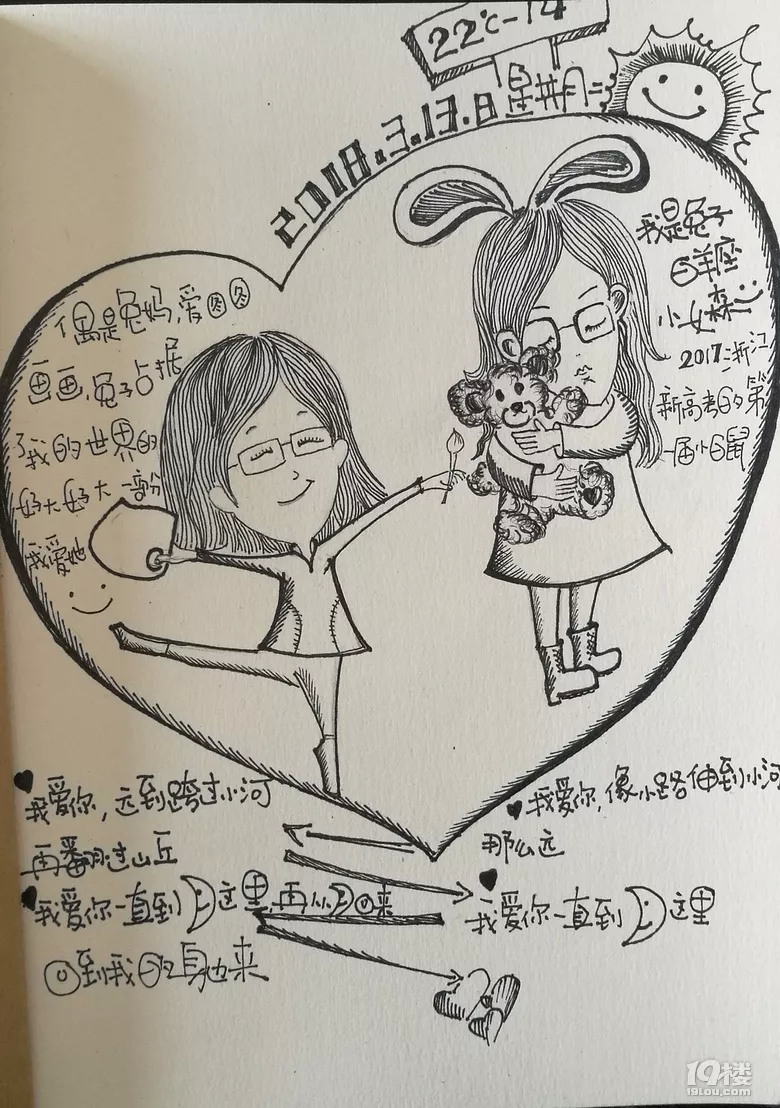 22℃-14
2018.3.13.日 星期二
我是兔子
白羊座
小女森
2017浙江
新高考的第
一届小白鼠
偶是兔妈,爱图图
画画,兔子占据
了我的世界的
好大好大一部份
我爱她
我爱你,远到跨过小河
再翻过山丘
我爱你,像小路伸到小河
那么远
我爱你一直到这里
我爱你一直到这里,再从回来
回到我的身边来
19楼
19lou.com